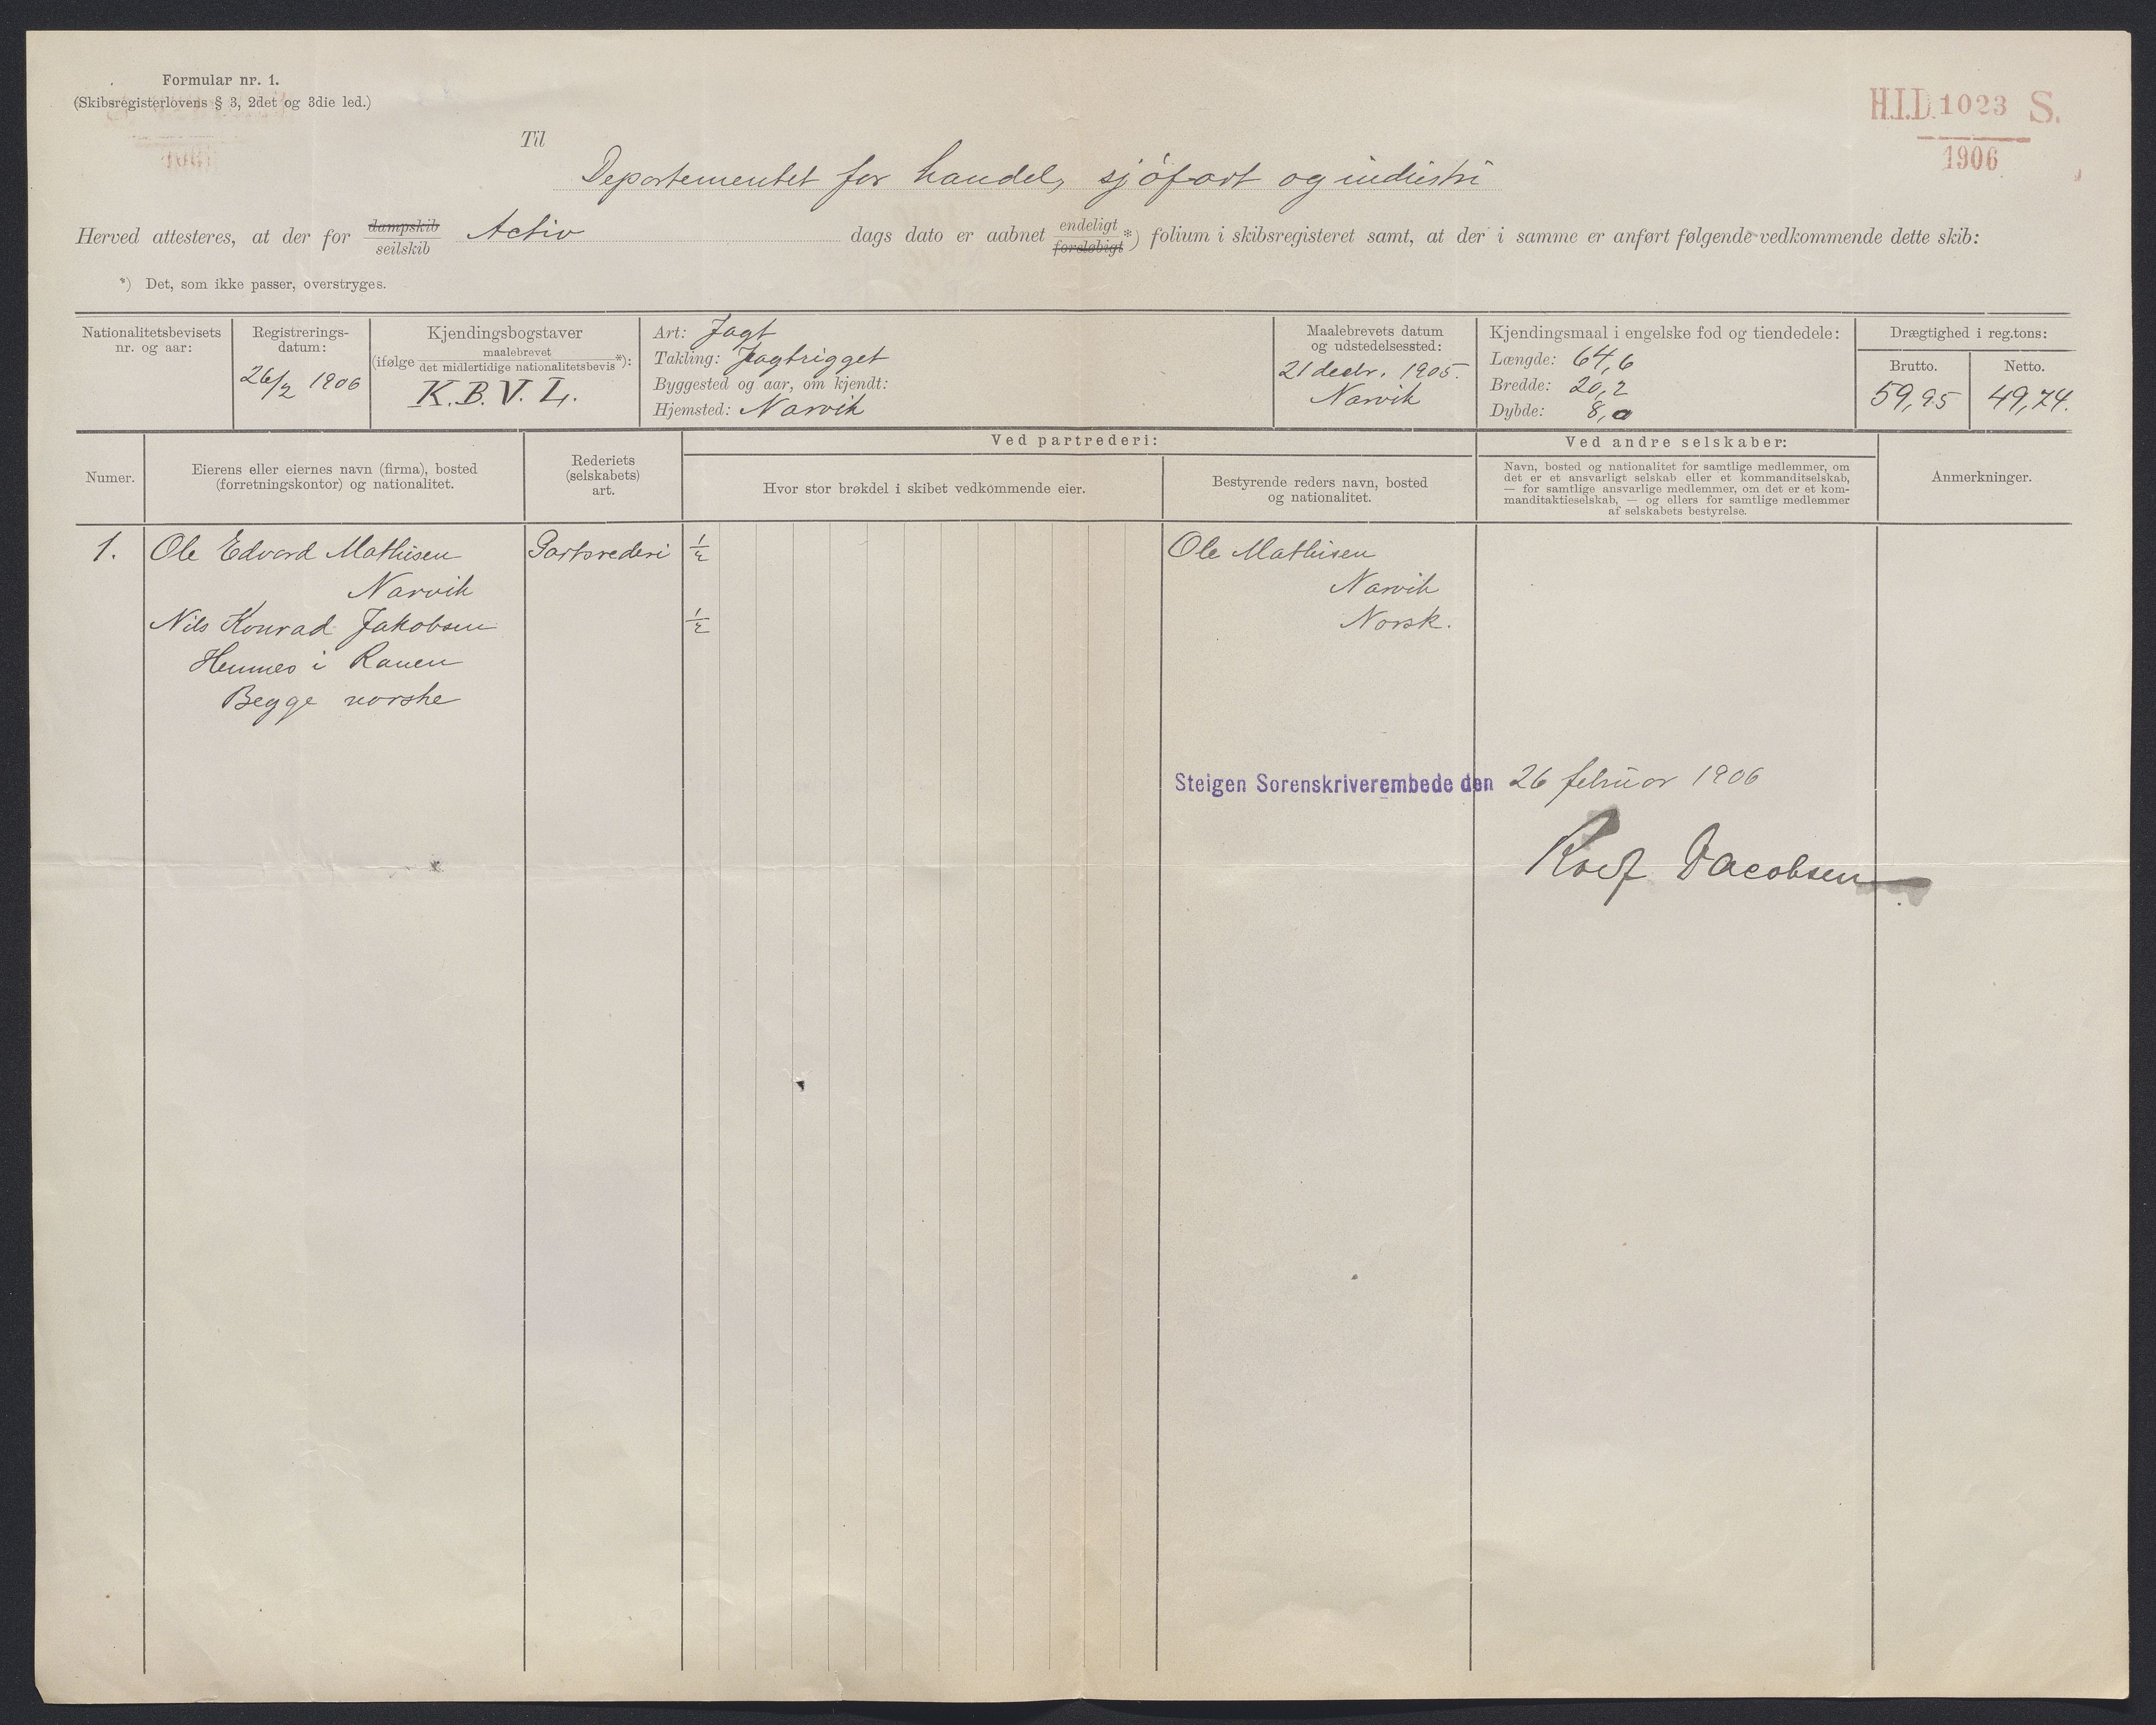 Formular nr. 1.
(Skibsregisterlovens § 3, 2det og 3die led.)
H.I.D. 1023 S.
1906
Til
Departementet for handel, sjöfart og industri
Herved attesteres, at der for dampskib seilskib Activ dags dato er aabnet endeligt foreløbigt *) folium i skibsregisteret samt, at der i samme er anført følgende vedkommende dette skib:
*) Det, som ikke passer, overstryges.
Nationalitetsbevisets
nr. og aar:
Registrerings-
datum:
26/2 1906
Kjendingsbogstaver
(ifølge maalebrevet det midlertidige nationalitetsbevis *):
K.B.V.L.
Art: Jagt
Takling: Jagtrigget
Byggested og aar, om kjendt:
Hjemsted: Narvik
Maalebrevets datum
og udstedelsessted:
21 decbr. 1905.
Narvik
Kjendingsmaal i engelske fod og tiendedele:
Længde: 64,6
Bredde: 20,2
Dybde: 8,0
Drægtighed i reg.tons:
Brutto.
59,95
Netto.
49,74.
Numer.
Eierens eller eiernes navn (firma), bosted
(forretningskontor) og nationalitet.
Rederiets
(selskabets)
art.
Ved partrederi:
Hvor stor brøkdel i skibet vedkommende eier.
Bestyrende reders navn, bosted
og nationalitet.
Ved andre selskaber:
Navn, bosted og nationalitet for samtlige medlemmer, om
det er et ansvarligt selskab eller et kommanditselskab,
— for samtlige ansvarlige medlemmer, om det er et kom-
manditaktieselskab, — og ellers for samtlige medlemmer
af selskabets bestyrelse.
Anmerkninger.
1. Ole Edvard Mathisen Partsrederi 1/2 Ole Mathisen
Narvik Narvik
Nils Konrad Jakobsen 1/2 Norsk.
Hemnes i Ranen
Begge norske
Steigen Sorenskriverembede den 26 februar 1906
Rolf Jacobsen